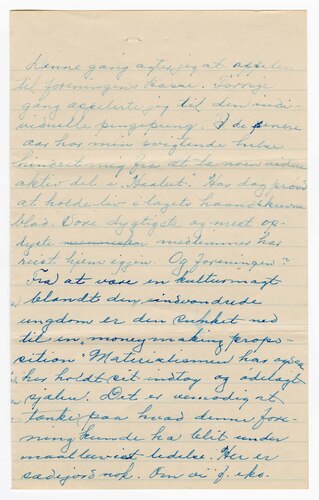 Denne gang agter jeg at appelere
til foreningens kasse. Forrige
gang appelerte jeg til den indi-
viduelle pengepung. I de senere
aar har min svigtende helse
hindret mig fra at ta noen videre
aktiv del i "Haabet". Har dog prøvd
at holde liv i lagets haandskrevne
blad. Vore dygtigste og mest op-
lyste medlemmer har
reist hjem igjen. Og foreningen?
Fra at være en kulturmagt
blandt den indvandrede
ungdom er den sunket ned
til in, money making propo-
sition" Materialismen har ogsaa
her holdt sit indtog og ødelagt
sjælen. Det er vemodig at
tænke paa hvad denne fore-
ning kunde ha blit under
maalbevist ledelse. Her er
sædejord nok. Om vi f. eks.